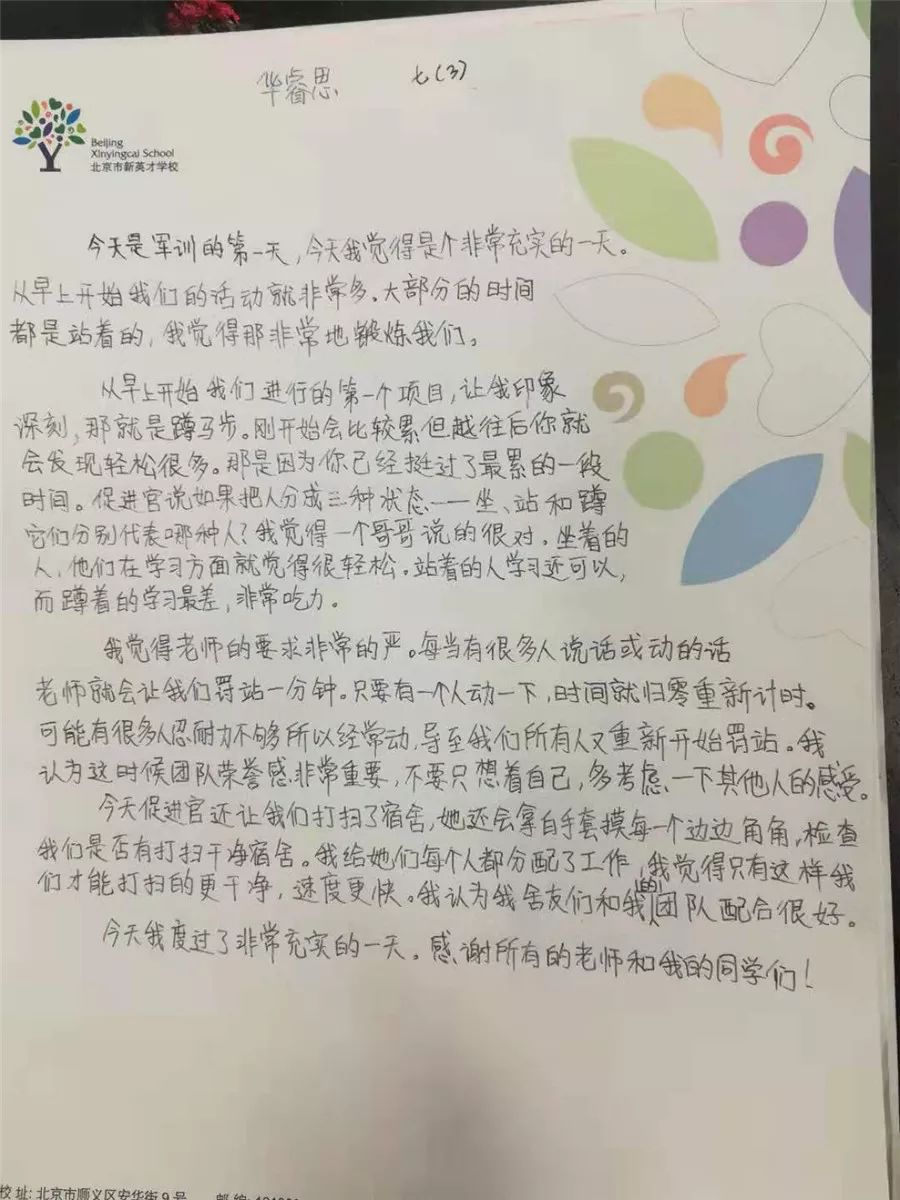 华睿思 七(3)
Beijing
Xinyingcai School
北京市新英才学校
今天是军训的第一天,今天我觉得是个非常充实的一天。
从早上开始我们的活动就非常多。大部分的时间
都是站着的,我觉得那非常地锻炼我们。
从早上开始我们进行的第一个项目,让我印象
深刻,那就是蹲马步。刚开始会比较累但越往后你就
会发现轻松很多。那是因为你已经挺过了最累的一段
时间。促进官说如果把人分成三种状态——坐、站和蹲
它们分别代表哪种人?我觉得一个哥哥说的很对。坐着的
人,他们在学习方面就觉得很轻松。站着的人学习还可以,
而蹲着的学习最差,非常吃力。
我觉得老师的要求非常的严。每当有很多人说话或动的话
老师就会让我们罚站一分钟。只要有一个人动一下,时间就归零重新计时。
可能有很多人忍耐力不够所以经常动,导至我们所有人又重新开始罚站。我
认为这时候团队荣誉感非常重要,不要只想着自己,多考虑一下其他人的感受。
今天促进官还让我们打扫了宿舍,她还会拿白手套摸每一个边边角角,检查
我们是否有打扫干净宿舍。我给她们每个人都分配了工作,我觉得只有这样我
们才能打扫的更干净,速度更快。我认为我舍友们和我的团队配合很好。
今天我度过了非常充实的一天。感谢所有的老师和我的同学们!
校址:北京市顺义区安华街9号 邮编: